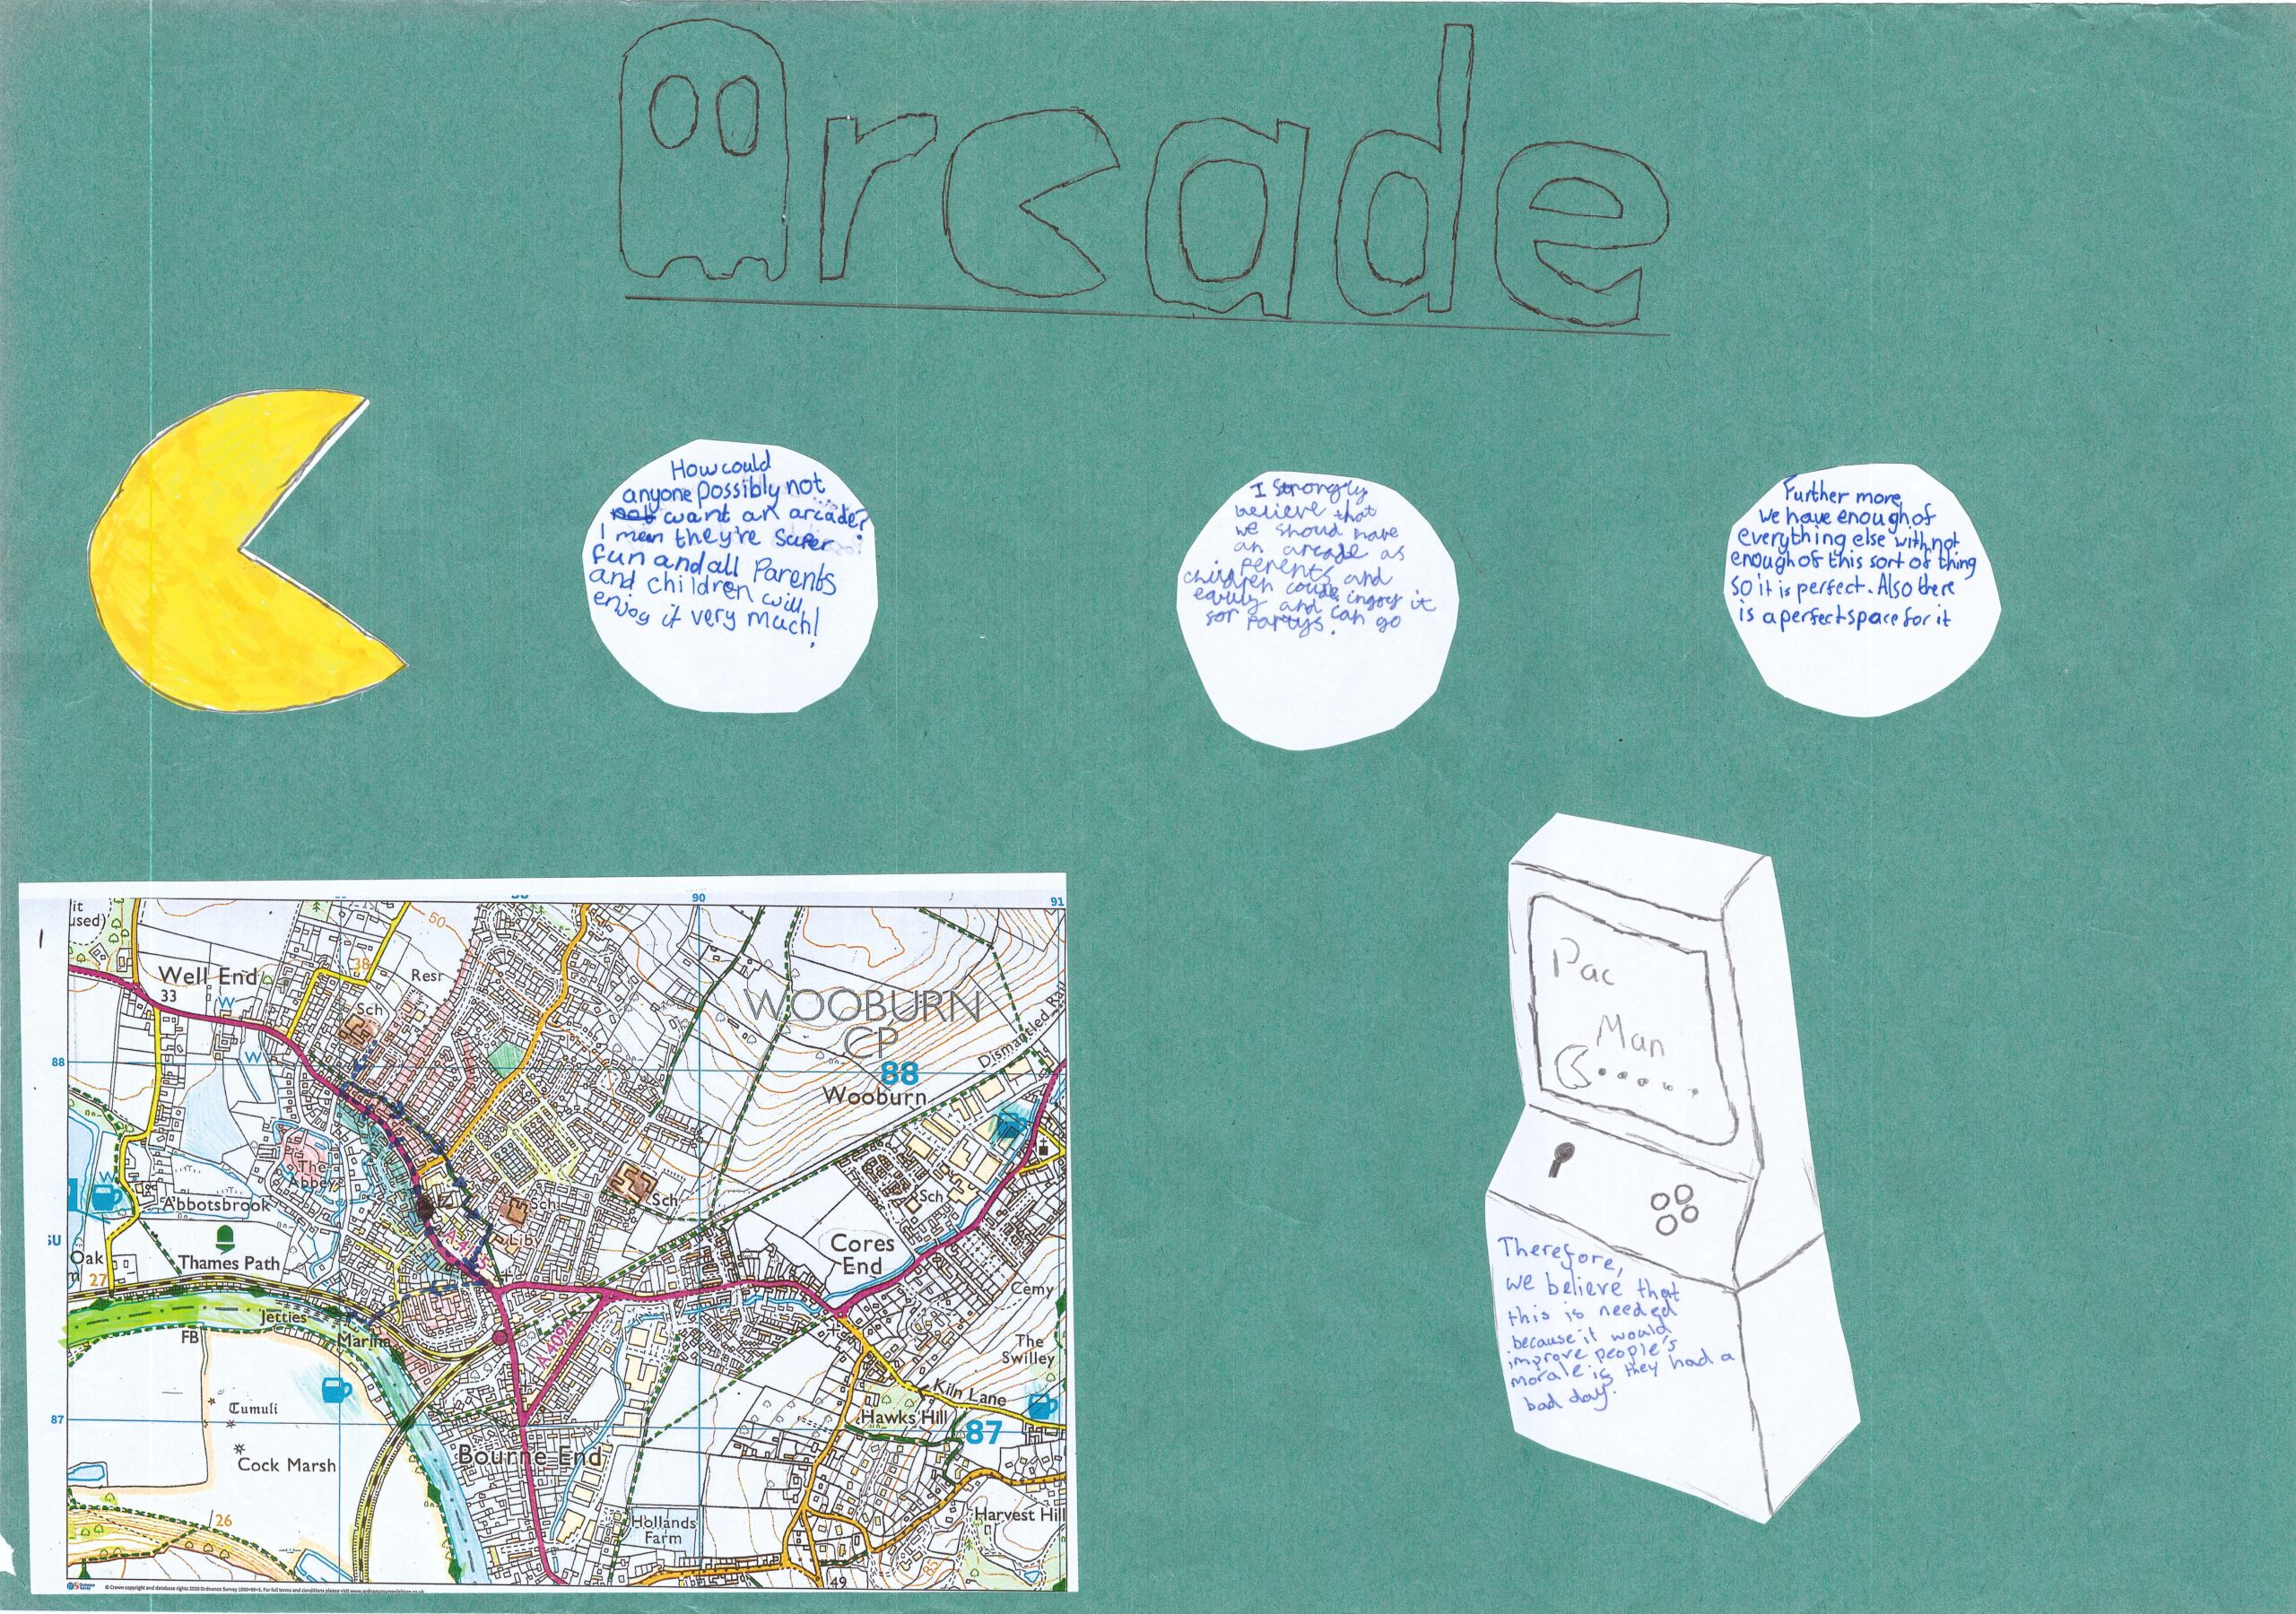 Arcade
How could
anyone possibly not
not want an arcade?
I mean they're super
fun and all Parents
and children will
enjoy it very much!
I strongly
believe that
we shoud have
an arcade as
perents and
children could ingoy it
equly and can go
for Partys.
Further more,
We have enough of
everything else with not
enough of this sort of thing
so it is perfect. Also there
is a perfect space for it
Pac
Man
Therefore,
we believe that
this is needed
because it would
improve people's
morale if they had a
bad day.
90
91
it
used)
50
Well End
33
38
Resr
Sch
W
W
WOOBURN
CP
88
88
Wooburn
Dismantled Rail
The
Abbey
W
Abbotsbrook
Sch
Sch
Sch
Liby
SU
Oak
m
27
Thames Path
Cores
End
Cemy
Jetties
FB
Marina
A 4094
The
Swilley
Kiln Lane
Tumuli
87
Hawks Hill
87
Cock Marsh
Bourne End
26
Hollands
Farm
Harvest Hill
85
49
Ordnance
Survey
© Crown copyright and database rights 2020 Ordnance Survey
For full terms and conditions please visit